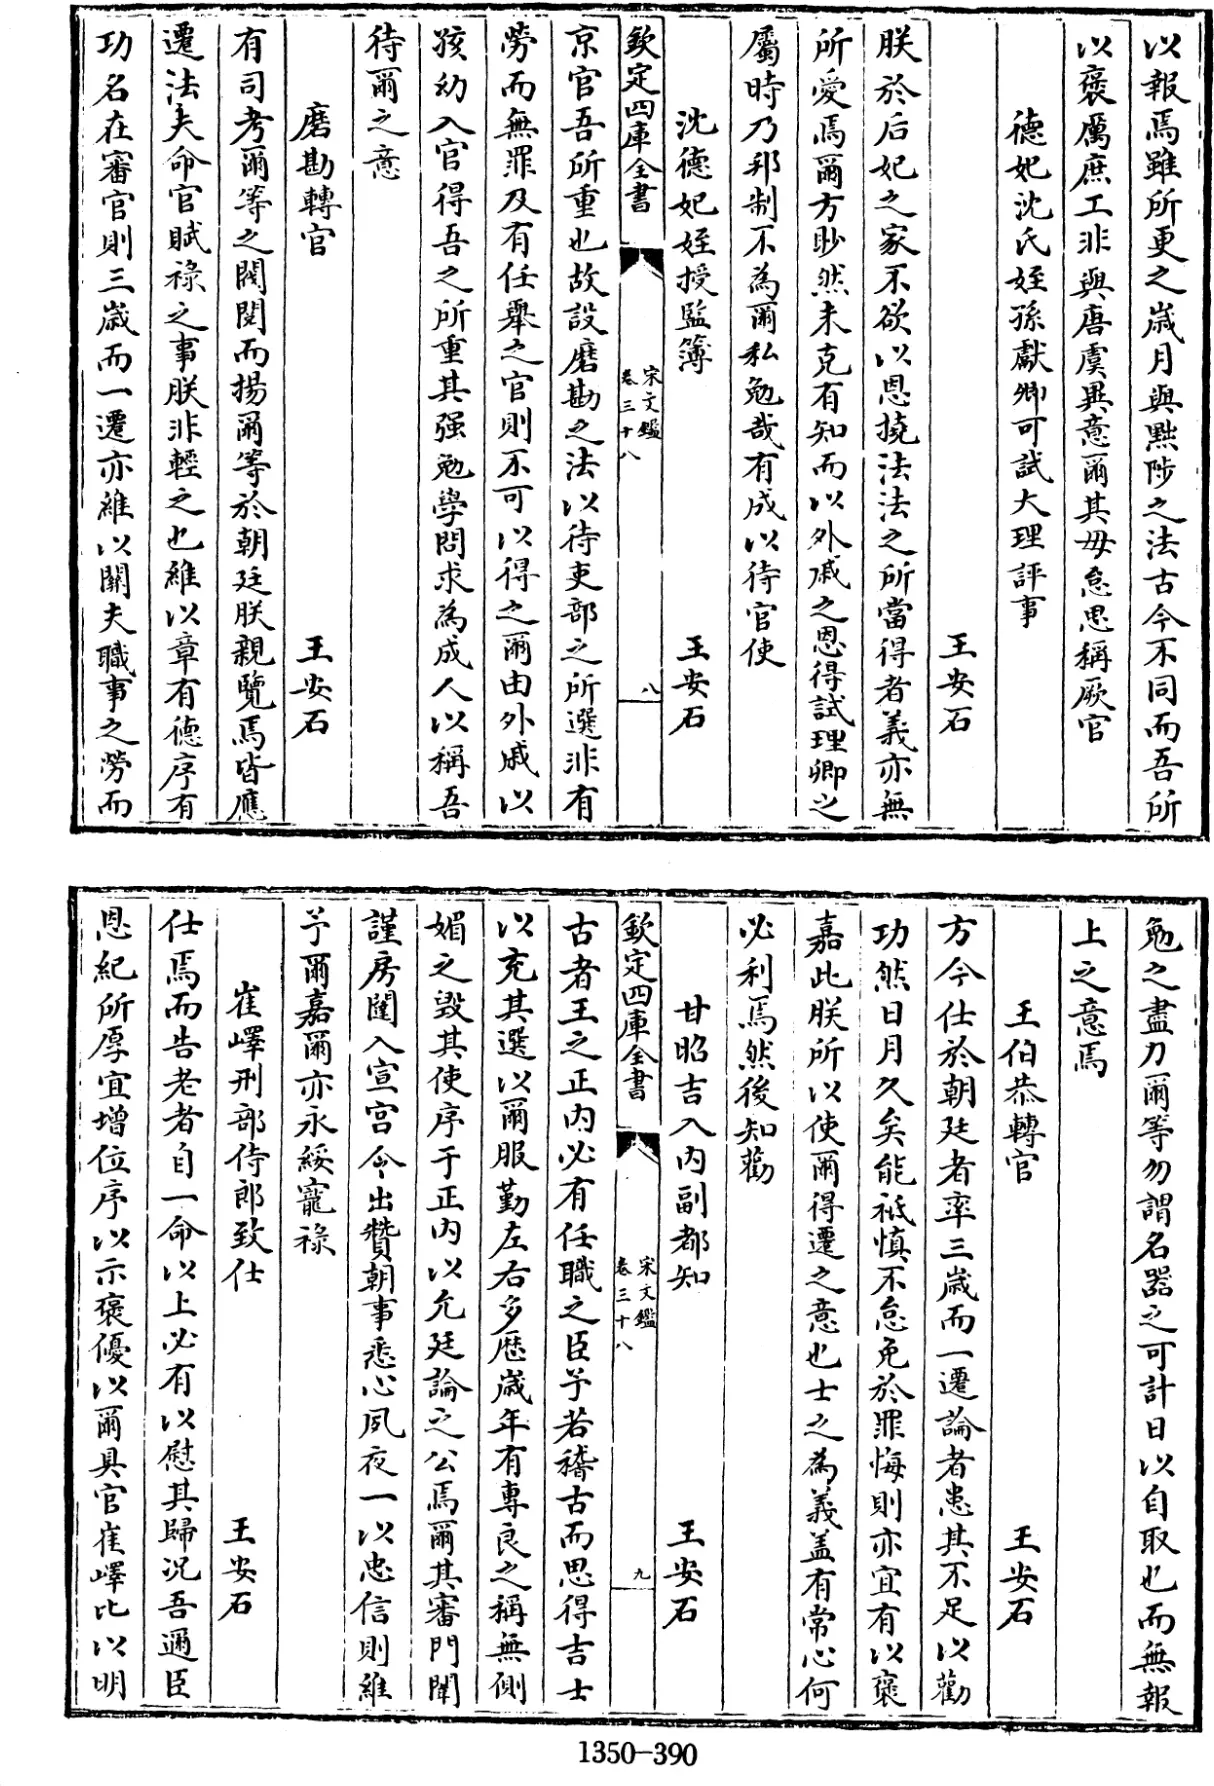 以報焉雖所更之歳月與黜陟之法古今不同而吾所
以襃厲庶工非與唐虞異意爾其毋怠思稱厥官
德妃沈氏姪孫獻卿可試大理評事
王安石
朕於后妃之家不欲以恩撓法法之所當得者義亦無
所愛焉爾方眇然未克有知而以外戚之恩得試理卿之
屬時乃邦制不為爾私勉哉有成以待官使
沈德妃姪授監簿
王安石
欽定四庫全書
宋文鑑
卷三十八
八
京官吾所重也故設磨勘之法以待吏部之所選非有
勞而無罪及有任舉之官則不可以得之爾由外戚以
孩幼入官得吾之所重其强勉學問求為成人以稱吾
待爾之意
磨勘轉官
王安石
有司考爾等之閥閱而揚爾等於朝廷朕親覽焉皆應
遷法夫命官賦禄之事朕非輕之也維以章有德序有
功名在審官則三歳而一遷亦維以閑夫職事之勞而
勉之盡力爾等勿謂名器之可計日以自取也而無報
上之意焉
王伯恭轉官
王安石
方今仕於朝廷者率三歳而一遷論者患其不足以勸
功然日月久矣能祗慎不怠免於罪悔則亦宜有以襃
嘉此朕所以使爾得遷之意也士之為義盖有常心何
必利焉然後知勸
甘昭吉入内副都知
王安石
欽定四庫全書
宋文鑑
卷三十八
九
古者王之正内必有任職之臣予若稽古而思得吉士
以充其選以爾服勤左右多歴歳年有專良之稱無側
媚之毁其使序于正内以允廷論之公焉爾其審門闈
謹房闥入宣宫令出贊朝事悉心夙夜一以忠信則維
予爾嘉爾亦永綏寵禄
崔嶧刑部侍郎致仕
王安石
仕焉而告老者自一命以上必有以慰其歸况吾邇臣
恩紀所厚宜增位序以示襃優以爾具官崔嶧比以明
1350-390